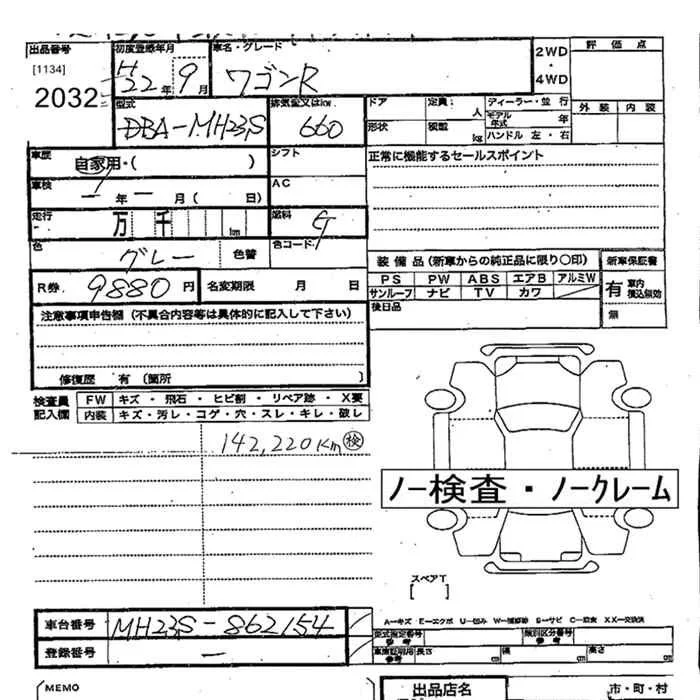 出品番号 初度登録年月 車名・グレード 2WD・4WD 評価点
[1134] H22年9月 ワゴンR
2032 外装 内装
型式 排気量又はkw ドア 定員 人 ディーラー・並行
DBA-MH23S 660 形状 積載 kg モデル年式 年
ハンドル 左・右
車歴 自家用・( ) シフト 正常に機能するセールスポイント
車検 ー年ー月( 日) AC
走行 万 千 km 燃料 G
色 グレー 色替 色コード 装備品(新車からの純正品に限り○印) 新車保証書
R券 9880円 名変期限 月 日 PS PW ABS エアB アルミW 有 車内積込無効
サンルーフ ナビ TV カワ
注意事項申告欄(不具合内容等は具体的に記入して下さい) 後日品 無
修復歴 有(箇所 )
検査員記入欄 FW キズ・飛石・ヒビ割・リペア跡・X要
内装 キズ・汚レ・コゲ・穴・スレ・キレ・破レ
142,220km 検
ノー検査・ノークレーム
スペアT
[ ]
車台番号 MH23S-862154 A―キズ E―エクボ U―凹み W―補修跡 S―サビ C―腐食 XX―交換済
型式指定番号 参考 類別区分番号 参考
登録番号 ー 車庫証明用参考 長さ cm 幅 cm 高さ cm
MEMO 出品店名 市・町・村